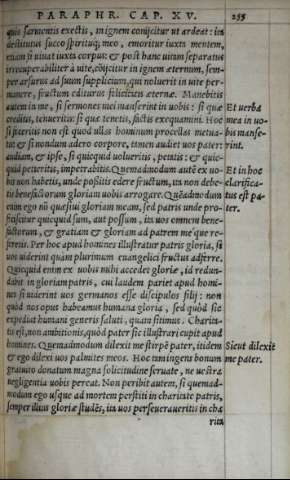 PARAPHR. CAP. XV. 255
quis sarmentis exectis, in ignem conijcitur ut ardeat: ita
destitutus succo spiritus, meo, emoritur iuxta mentem,
etiam si uiuat iuxta corpus: & post hanc uitam separatus
irrecuperabiliter à uite, cõijcitur in ignem æternum, sem-
per arsurus ad suum supplicium, qui noluerit in uite per-
manere, fructum editurus felicitatis æternæ. Manebitis
autem in me, si sermones mei manserint in uobis: si quæ
Et uerba
creditis, tenueritis: si quæ tenetis, factis exequamini. Hoc
mea in uo-
si feceritis non est quod ullas hominum procellas metua-
bis manse-
tis: & si nondum adero corpore, tamen audiet uos pater:
rint.
audiam, & ipse, si quicquid uolueritis, petitis: & quic-
quid petieritis, impetrabitis. Quemadmodum autẽ ex uo-
Et in hoc
bis non habetis, unde possitis edere fructum, ita non debe-
clarifica-
tis benefactorum gloriam uobis arrogare. Quẽadmodum
tus est pa-
enim ego nõ quæsiui gloriam meam, sed patris unde pro-
ter.
ficiscitur quicquid sum, aut possum, ita uos omnem bene-
factorum, & gratiam & gloriam ad patrem me'que re-
feretis. Per hoc apud homines illustratur patris gloria, si
uos uiderint quàm plurimum euangelici fructus adferre.
Quicquid enim ex uobis mihi accedet gloriæ, id redun-
dabit in gloriam patris, cui laudem pariet apud homi-
nes si uiderint uos germanos esse discipulos filij: non
quòd nos opus habeamus humana gloria, sed quòd sic
expediat humani generis saluti, quam sitimus. Charita-
tis est, non ambitionis, quòd pater sic illustrari cupit apud
homines. Quemadmodum dilexit me stirpẽ pater, itidem
Sicut dilexit
& ego dilexi uos palmites meos. Hoc tam ingens bonum
me pater.
gratuito donatum magna solicitudine seruate, ne uestra
negligentia uobis pereat. Non peribit autem, si quemad-
modum ego usque ad mortem perstiti in charitate patris,
semper illius gloriæ studẽs, ita uos perseueraueritis in cha
rita